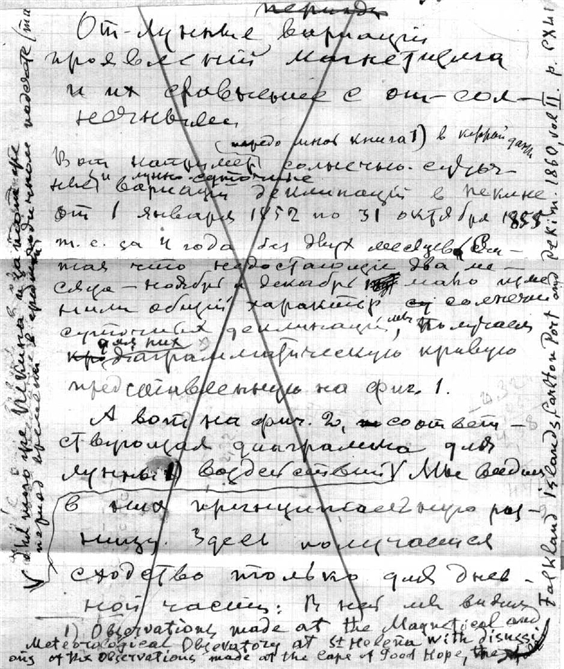 периоды
От-лунные вариаций
проявлений магнетизма
и их сравнение с от-сол-
нечными
(передо мною книга 1) в которой даны
Вот например солнечно-суточ-
ные и лунно-суточные
вариаций деклинаций в Пекине
от 1 января 1852 по 31 октября 1855
т.е. за 4 года без двух месяцев. Счи-
тая что недостающие два ме-
сяца – ноябрь и декабрь мало изме
нили общий характер солнечно
суточных деклинаций, мы получаем
для них
диаграмматическую кривую
представленную на фиг. 1.
А вот на фиг. 2, соответ-
ствующая диаграмма для
лунных воздействий V Мы видим
в них принципиальную раз-
ницу. Здесь получается
сходство только для днев-
ной части: В ней мы видим
1) Observations made at the Magnetical and
Meteorological Observatory at St Helena with discussi
ons of the observations made at the Cape of Good Hope, the
Falkland Islands, Carlton Port and Pekin. 1860, vol II. p. CXLI
V для того же Пекина и за тот же
период времени в